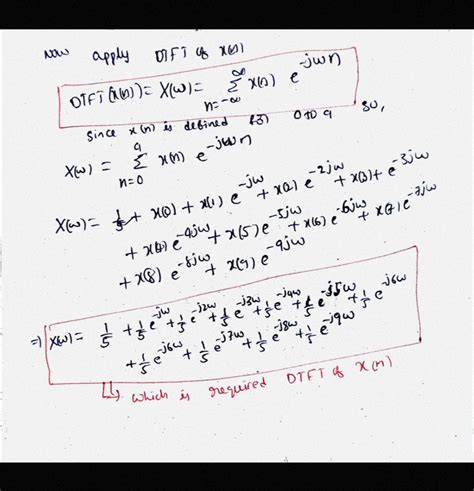 Now apply DTFT of x(n)
DTFT(x(n)) = X(ω) = ∑_{n=-∞}^{∞} x(n) e^{-jωn}
Since x(n) is defined for 0 to 9 so,
X(ω) = ∑_{n=0}^{9} x(n) e^{-jωn}
X(ω) = x(0) + x(1) e^{-jω} + x(2) e^{-2jω} + x(3) e^{-3jω}
+ x(4) e^{-4jω} + x(5) e^{-5jω} + x(6) e^{-6jω} + x(7) e^{-7jω}
+ x(8) e^{-8jω} + x(9) e^{-9jω}
⇒ X(ω) = 1/5 + 1/5 e^{-jω} + 1/5 e^{-j2ω} + 1/5 e^{-j3ω} + 1/5 e^{-j4ω} + 1/5 e^{-j5ω} + 1/5 e^{-j6ω}
+ 1/5 e^{-j6ω} + 1/5 e^{-j7ω} + 1/5 e^{-j8ω} + 1/5 e^{-j9ω}
which is required DTFT of x(n)